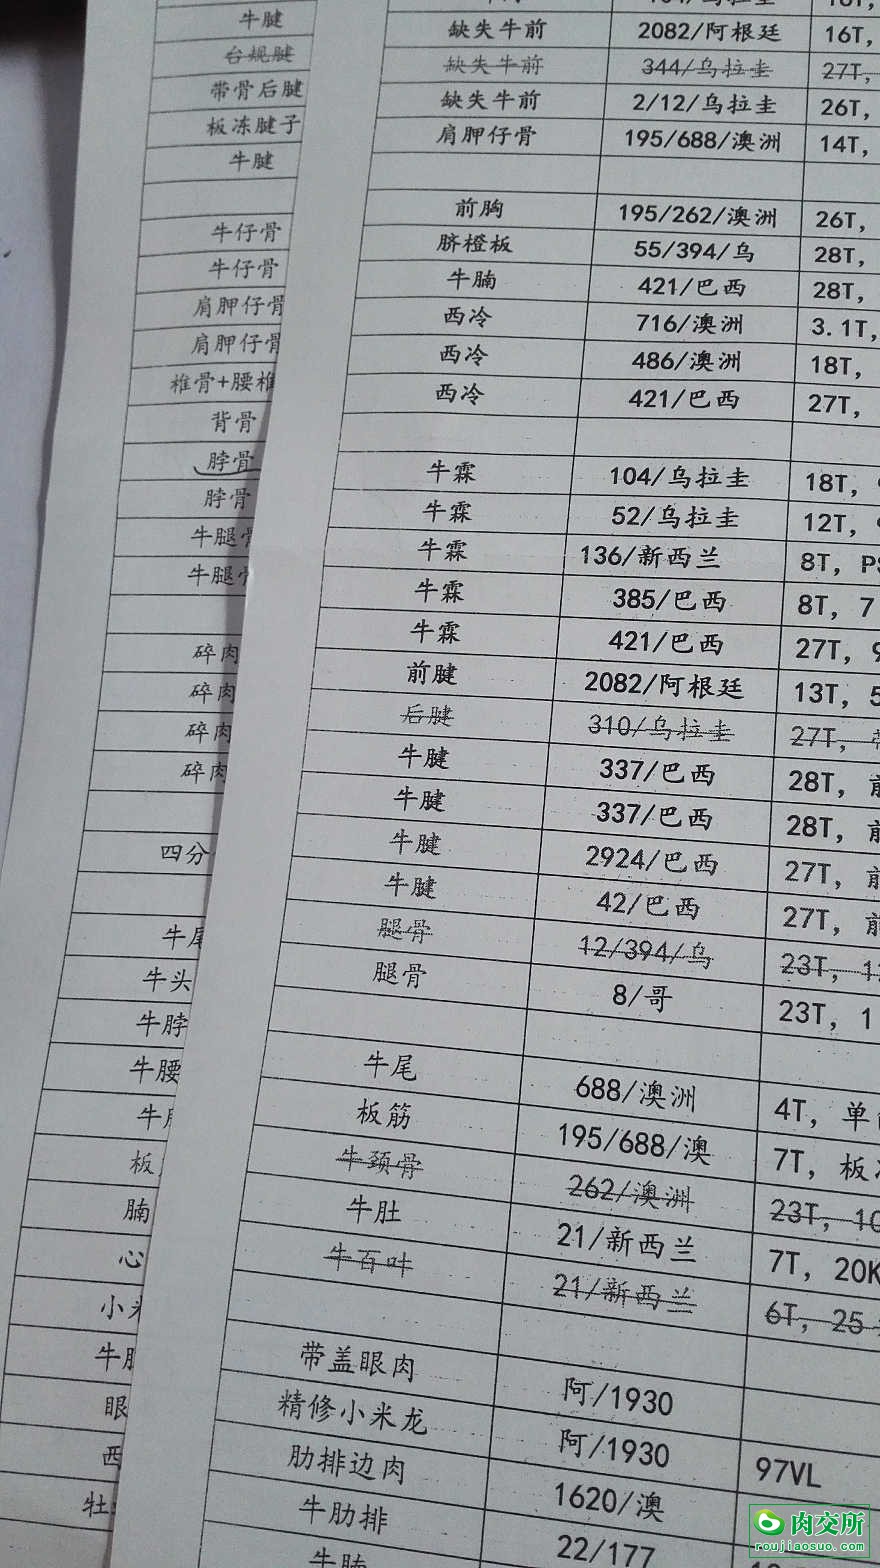 牛腱
台规腱
带骨后腱
板冻腱子
牛腱
牛仔骨
牛仔骨
肩胛仔骨
肩胛仔骨
椎骨+腰椎
背骨
脖骨
脖骨
牛腿骨
牛腿
碎肉
碎肉
碎肉
碎肉
四分
牛尾
牛头
牛脖
牛腰
牛
板
腩
心
小米
牛
眼
西
牡
缺失牛前 2082/阿根廷 16T,
缺失牛前 344/乌拉圭 27T,
缺失牛前 2/12/乌拉圭 26T,
肩胛仔骨 195/688/澳洲 14T,
前胸 195/262/澳洲 26T,
脐橙板 55/394/乌 28T,
牛腩 421/巴西 28T,
西冷 716/澳洲 3.1T,
西冷 486/澳洲 18T,
西冷 421/巴西 27T,
牛霖 104/乌拉圭 18T,
牛霖 52/乌拉圭 12T,
牛霖 136/新西兰 8T, PS
牛霖 385/巴西 8T, 7
牛霖 421/巴西 27T, 9
前腱 2082/阿根廷 13T, 5
后腱 310/乌拉圭 27T, 带
牛腱 337/巴西 28T, 前
牛腱 337/巴西 28T, 前
牛腱 2924/巴西 27T, 前
牛腱 42/巴西 27T, 前
腿骨 12/394/乌 23T, 1
腿骨 8/哥 23T, 1
牛尾 688/澳洲 4T, 单
板筋 195/688/澳 7T, 板冻
牛颈骨 262/澳洲 23T, 10
牛肚 21/新西兰 7T, 20K
牛百叶 21/新西兰 6T, 25
带盖眼肉 阿/1930
精修小米龙 阿/1930 97VL
肋排边肉 1620/澳
牛肋排 22/177
牛腩
肉交所
roujiaosuo.com